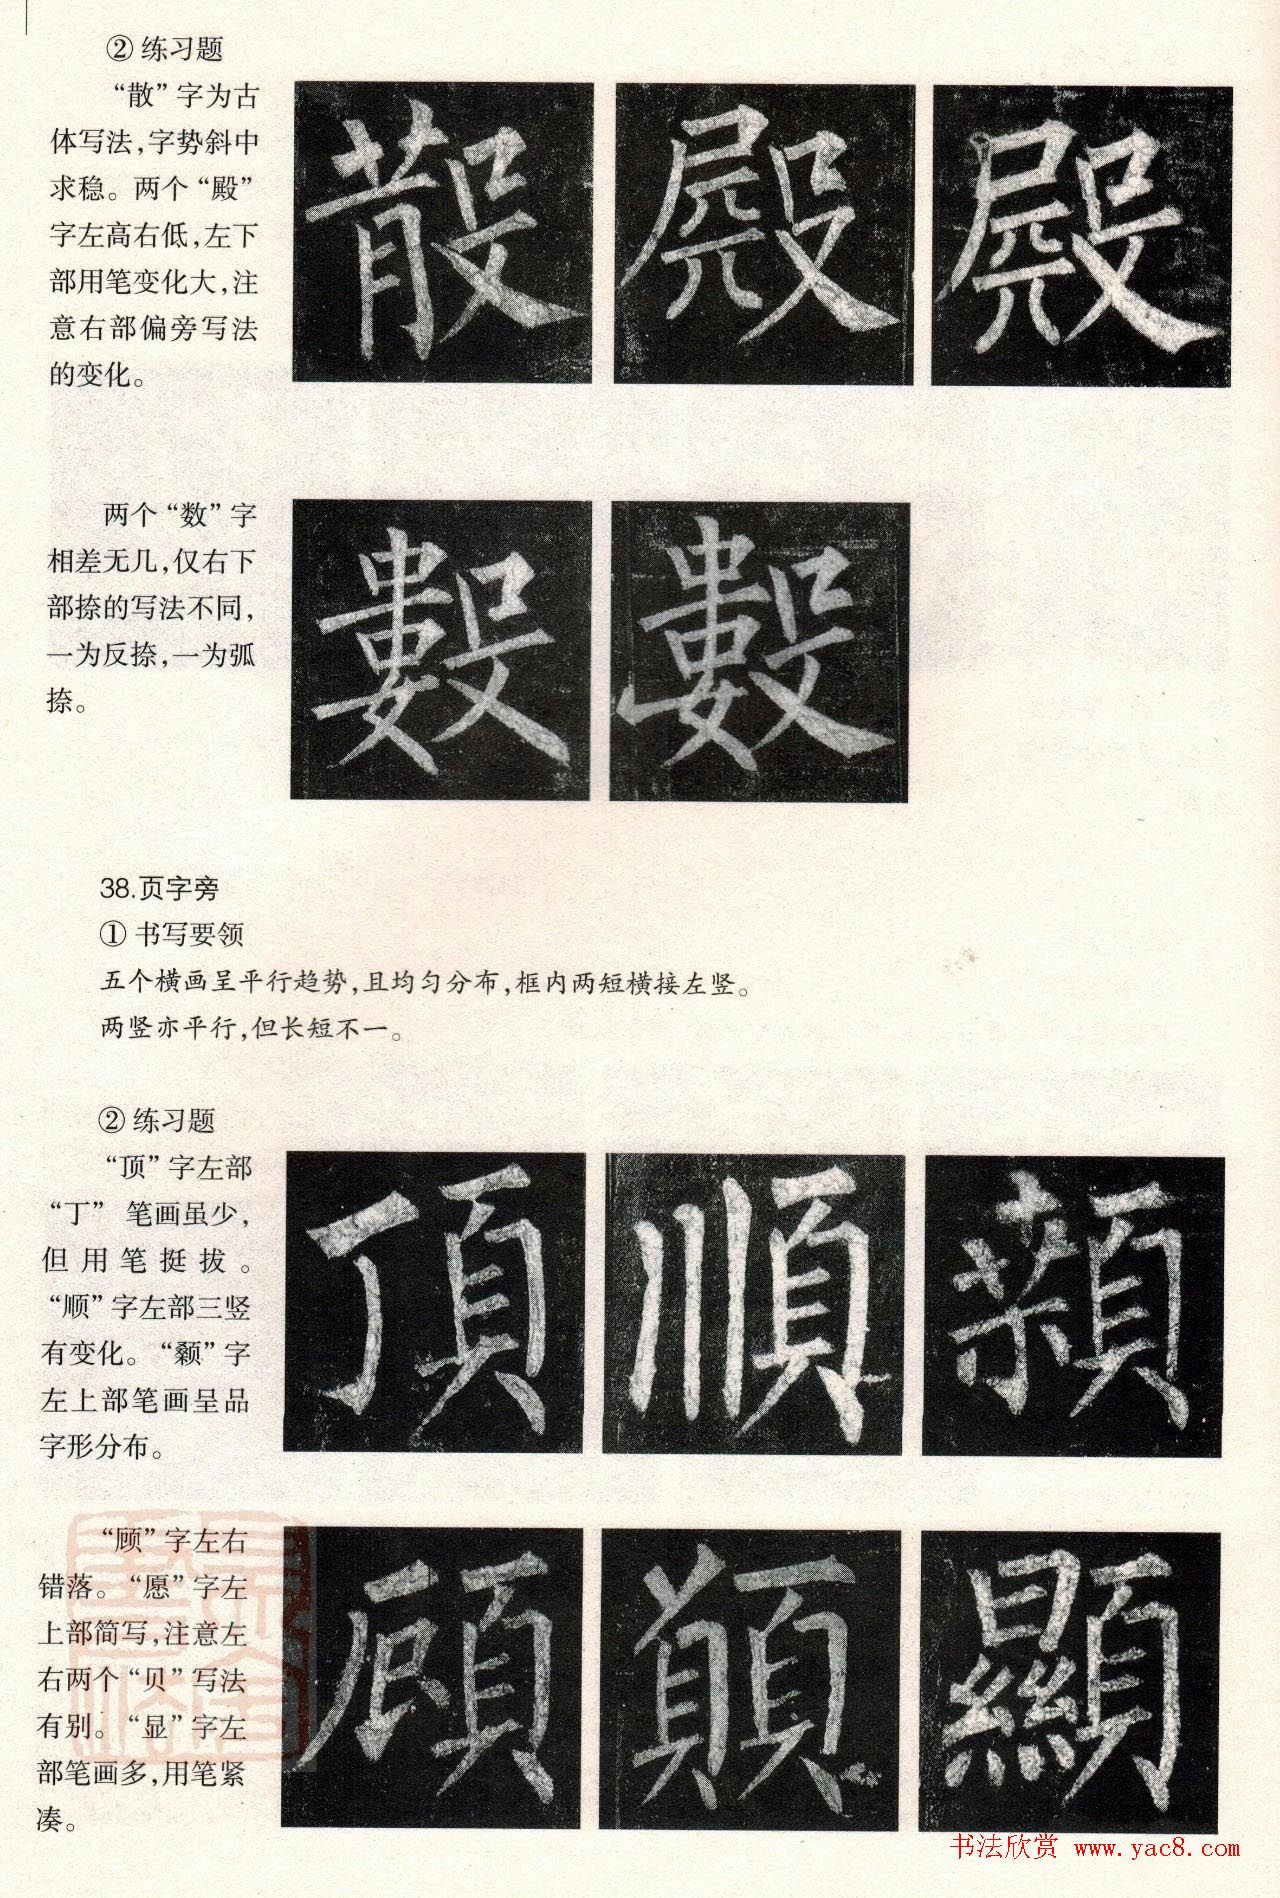 ② 练习题
“散”字为古
体写法,字势斜中
求稳。两个“殿”
字左高右低,左下
部用笔变化大,注
意右部偏旁写法
的变化。
散 殿 殿
两个“数”字
相差无几,仅右下
部捺的写法不同,
一为反捺,一为弧
捺。
數 數
38.页字旁
① 书写要领
五个横画呈平行趋势,且均匀分布,框内两短横接左竖。
两竖亦平行,但长短不一。
② 练习题
“顶”字左部
“丁” 笔画虽少,
但用笔挺拔。
“顺”字左部三竖
有变化。“颡”字
左上部笔画呈品
字形分布。
頂 順 顙
“顾”字左右
错落。“愿”字左
上部简写,注意左
右两个“贝”写法
有别。“显”字左
部笔画多,用笔紧
凑。
顧 願 顯
书法欣赏 www.yac8.com